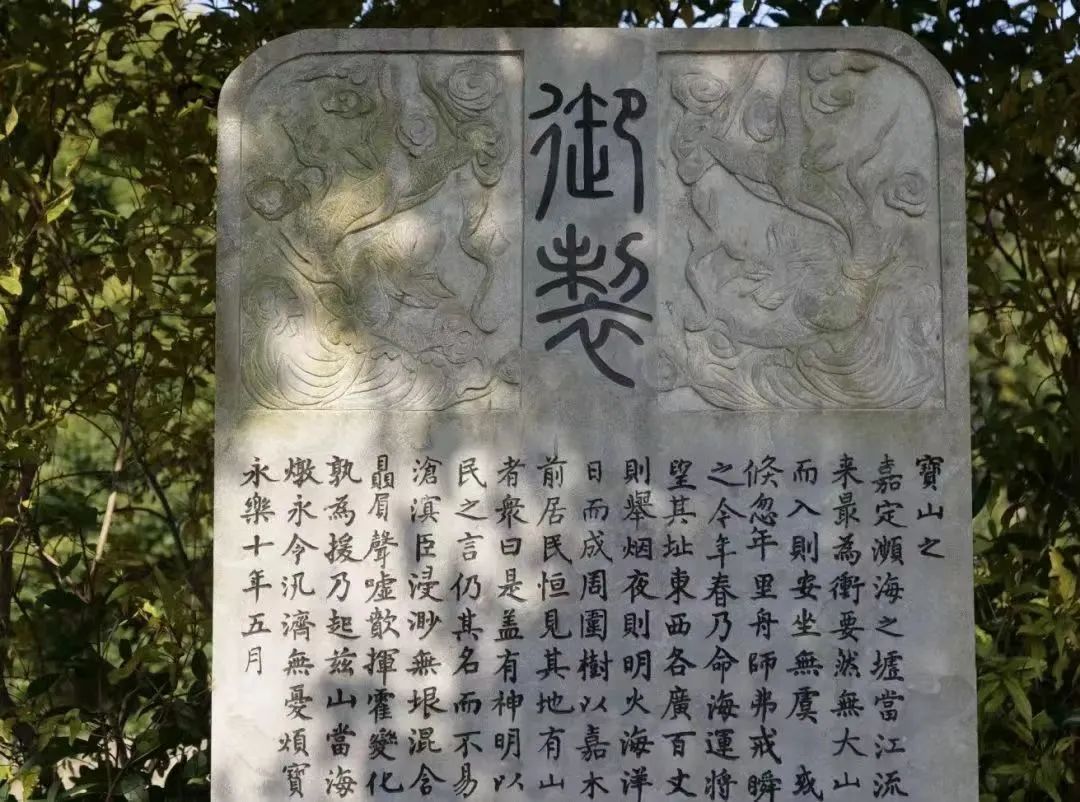 御製
寶山之
嘉定瀕海之墟當江流
来最為衝要然無大山
而入則安坐無虞 或
倏忽年里舟師弗戒瞬
之今年春乃命海運將
望其址東西各廣百丈
則舉烟夜則明火海洋
日而成周圍樹以嘉木
前居民恒見其地有山
者衆曰是盖有神明以
民之言仍其名而不易
滄溟臣浸渺無垠混含
贔屓聲噓歙揮霍變化
孰為援乃起兹山當海
燉永令汎濟無憂煩寶
永樂十年五月